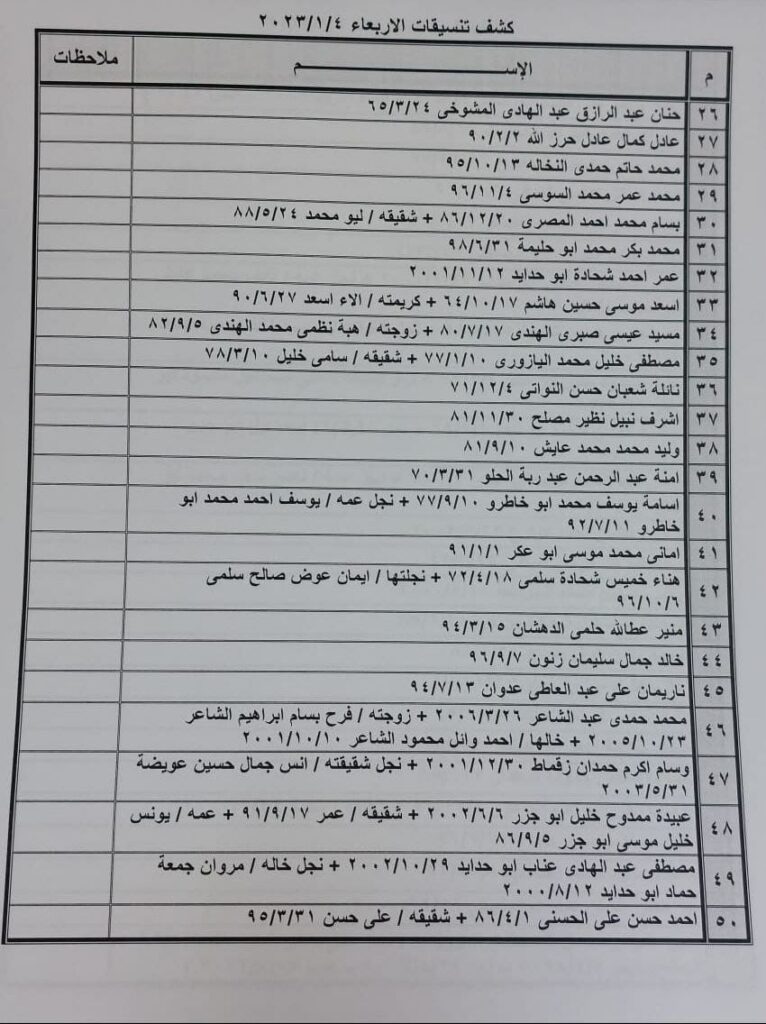 كشف تنسيقات الاربعاء ٢٠٢٣/١/٤
م الإســـــم ملاحظات
٢٦ حنان عبد الرازق عبد الهادى المشوخى ٦٥/٣/٢٤
٢٧ عادل كمال عادل حرز الله ٩٠/٢/٢
٢٨ محمد حاتم حمدى النخاله ٩٥/١٠/١٣
٢٩ محمد عمر محمد السوسى ٩٦/١١/٤
٣٠ بسام محمد احمد المصرى ٨٦/١٢/٢٠ + شقيقه / ليو محمد ٨٨/٥/٢٤
٣١ محمد بكر محمد ابو حليمة ٩٨/٦/٣١
٣٢ عمر احمد شحادة ابو حدايد ٢٠٠١/١١/١٢
٣٣ اسعد موسى حسين هاشم ٦٤/١٠/١٧ + كريمته / الاء اسعد ٩٠/٦/٢٧
٣٤ مسيد عيسى صبرى الهندى ٨٠/٧/١٧ + زوجته / هبة نظمى محمد الهندى ٨٢/٩/٥
٣٥ مصطفى خليل محمد اليازورى ٧٧/١/١٠ + شقيقه / سامى خليل ٧٨/٣/١٠
٣٦ نائلة شعبان حسن النواتى ٧١/١٢/٤
٣٧ اشرف نبيل نظير مصلح ٨١/١١/٣٠
٣٨ وليد محمد محمد عايش ٨١/٩/١٠
٣٩ امنة عبد الرحمن عبد ربة الحلو ٧٠/٣/٣١
٤٠ اسامة يوسف محمد ابو خاطرو ٧٧/٩/١٠ + نجل عمه / يوسف احمد محمد ابو
خاطرو ٩٢/٧/١١
٤١ امانى محمد موسى ابو عكر ٩١/١/١
٤٢ هناء خميس شحادة سلمى ٧٢/٤/١٨ + نجلتها / ايمان عوض صالح سلمى
٩٦/١٠/٦
٤٣ منير عطالله حلمى الدهشان ٩٤/٣/١٥
٤٤ خالد جمال سليمان زنون ٩٦/٩/٧
٤٥ ناريمان على عبد العاطى عدوان ٩٤/٧/١٣
٤٦ محمد حمدى عبد الشاعر ٢٠٠٦/٣/٢٦ + زوجته / فرح بسام ابراهيم الشاعر
٢٠٠٥/١٠/٢٣ + خالها / احمد وائل محمود الشاعر ٢٠٠١/١٠/١٠
٤٧ وسام اكرم حمدان زقماط ٢٠٠١/١٢/٣٠ + نجل شقيقته / انس جمال حسين عويضة
٢٠٠٣/٥/٣١
٤٨ عبيدة ممدوح خليل ابو جزر ٢٠٠٢/٦/٦ + شقيقه / عمر ٩١/٩/١٧ + عمه / يونس
خليل موسى ابو جزر ٨٦/٩/٥
٤٩ مصطفى عبد الهادى عناب ابو حدايد ٢٠٠٢/١٠/٢٩ + نجل خاله / مروان جمعة
حماد ابو حدايد ٢٠٠٠/٨/١٢
٥٠ احمد حسن على الحسنى ٨٦/٤/١ + شقيقه / على حسن ٩٥/٣/٣١